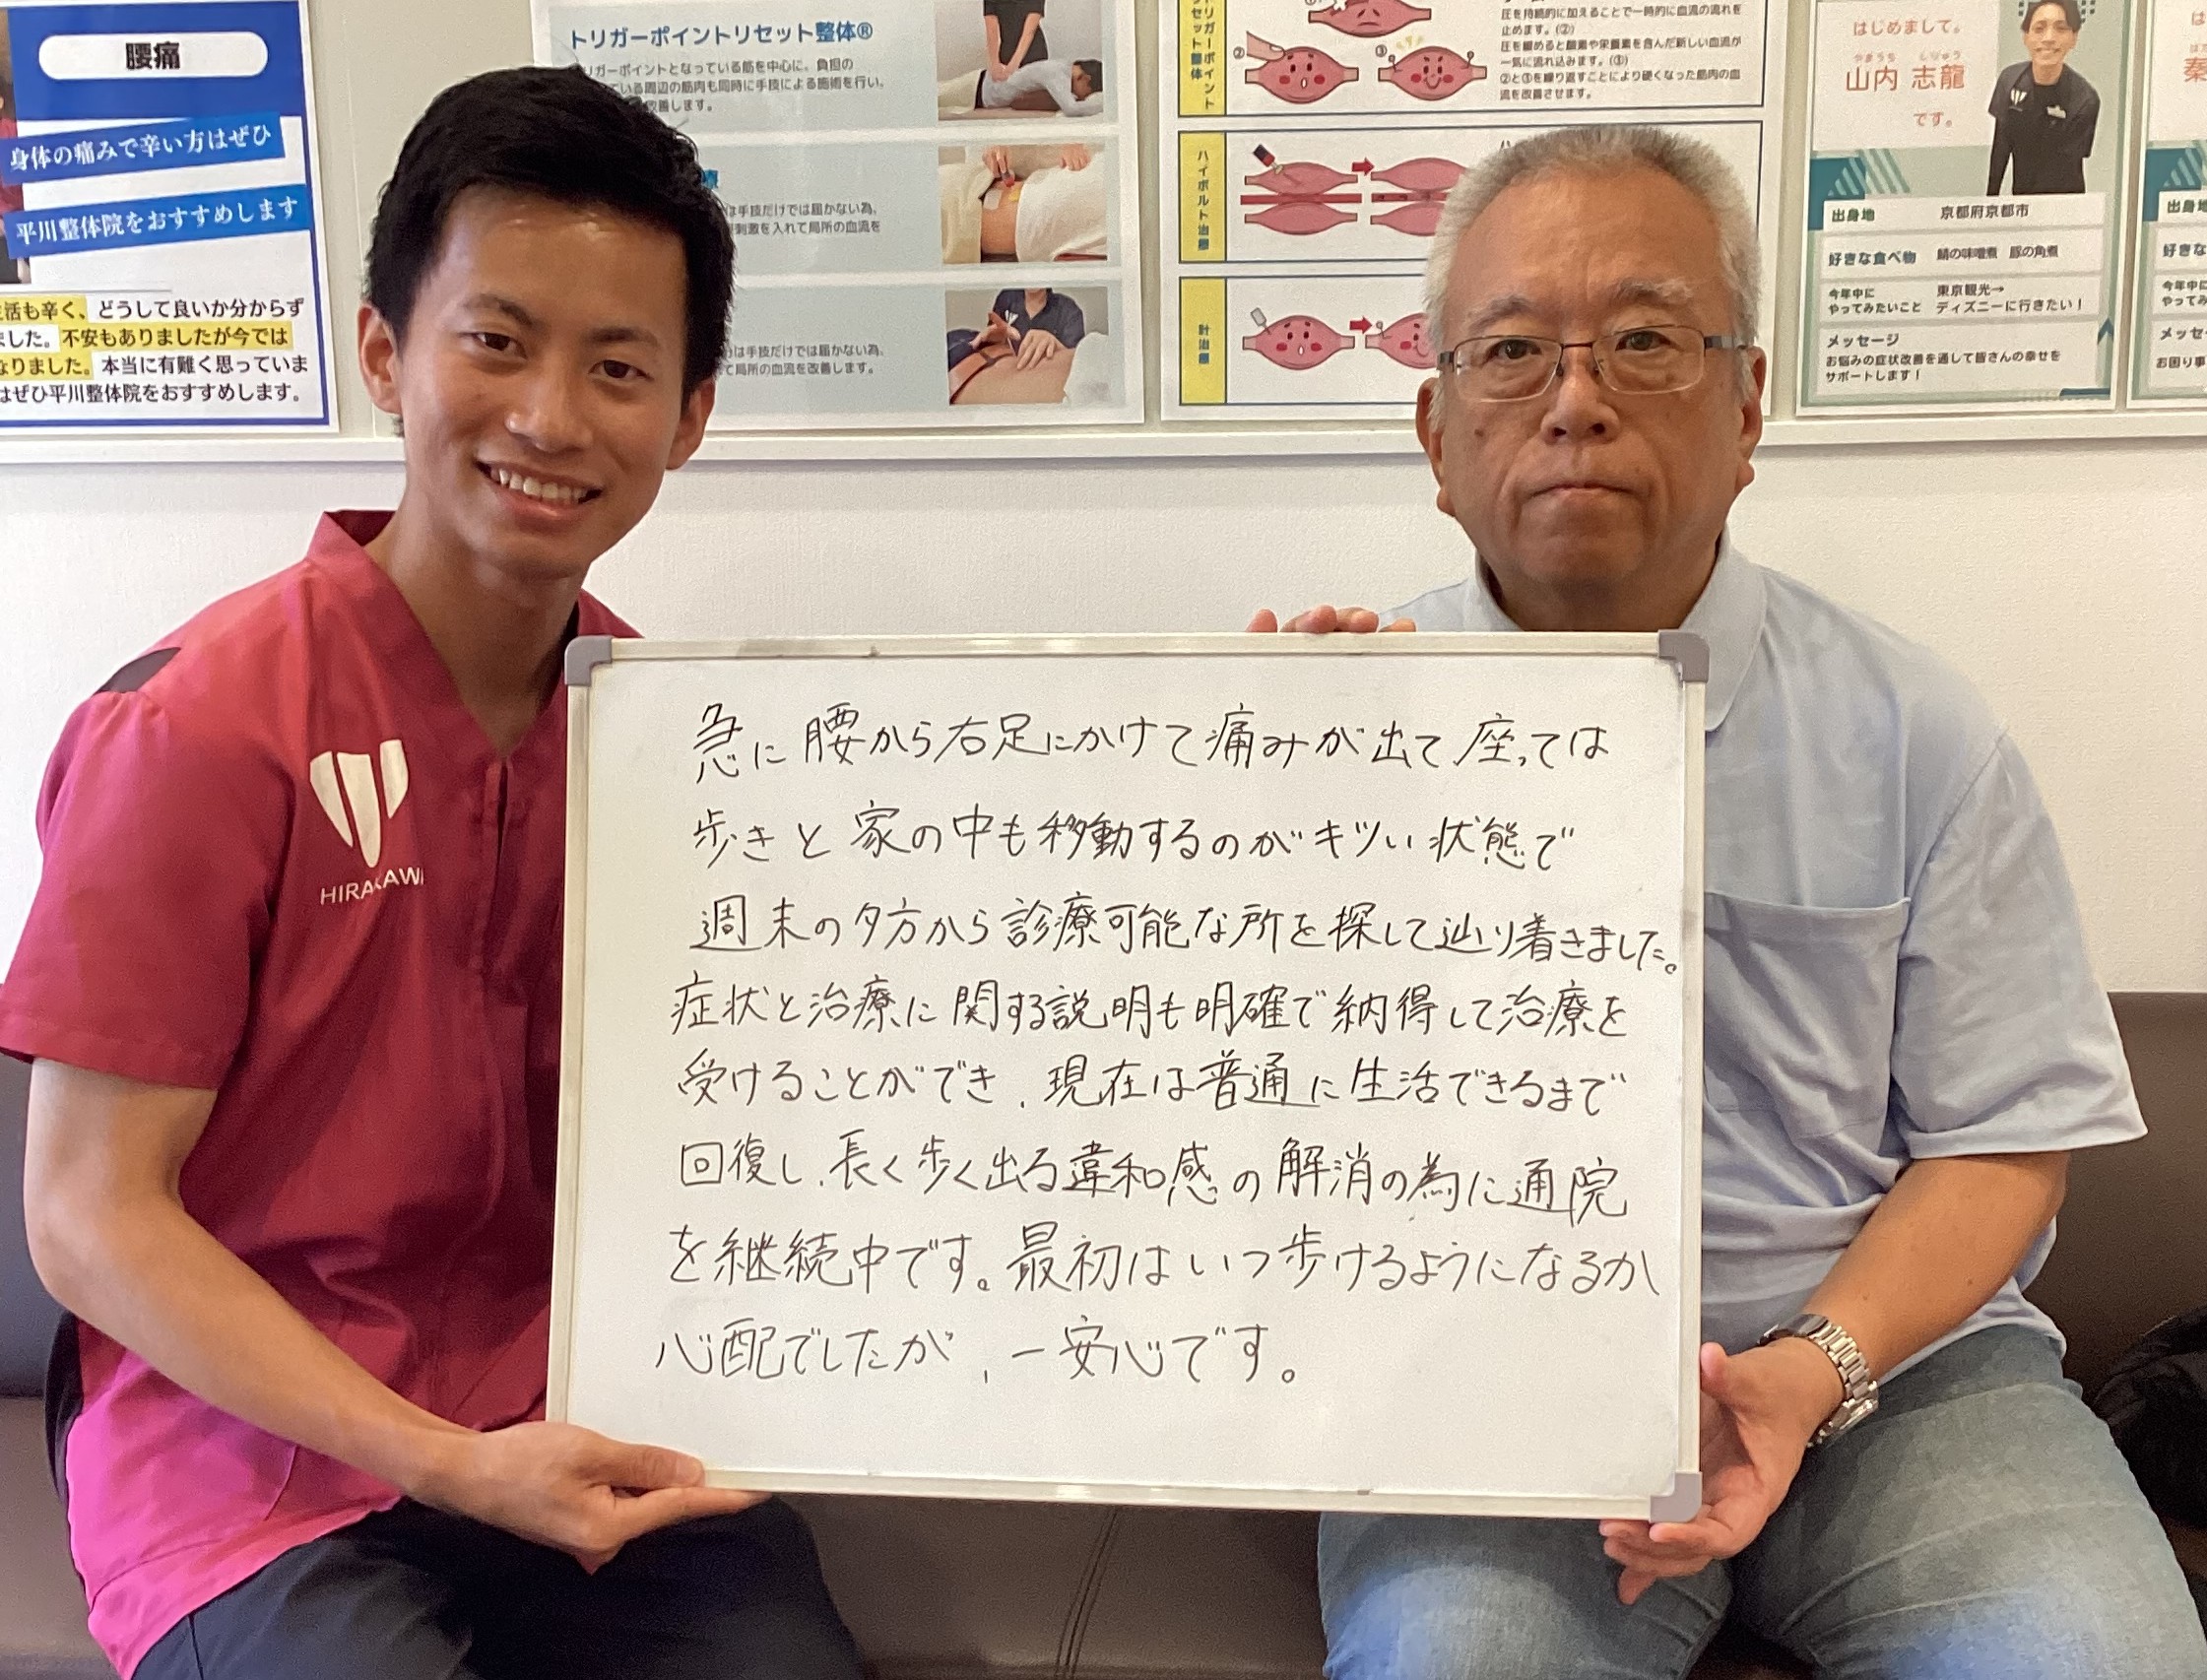 腰痛
身体の痛みで辛い方はぜひ
平川整体院をおすすめします
活も辛く、どうして良いか分からず
ました。不安もありましたが今では
なりました。本当に有難く思っていま
はぜひ平川整体院をおすすめします。
トリガーポイントリセット整体®
リガーポイントとなっている筋を中心に、負担の
ている周辺の筋肉も同時に手技による施術を行い、
改善します。
は手技だけでは届かない為、
刺激を入れて局所の血流を
は手技だけでは届かない為、
て局所の血流を改善します。
リガーポイント
セット整体
②
③
圧を持続的に加えることで一時的に血流の流れを
止めます。(②)
圧を緩めると酸素や栄養素を含んだ新しい血流が
一気に流れ込みます。(③)
②と③を繰り返すことにより硬くなった筋肉の血
流を改善させます。
ハイボルト治療
針治療
はじめまして。
やまうち しりゅう
山内 志龍
です。
出身地 京都府京都市
好きな食べ物 鯖の味噌煮 豚の角煮
今年中に
やってみたいこと
東京観光→
ディズニーに行きたい!
メッセージ
お悩みの症状改善を通して皆さんの幸せを
サポートします!
秦
出身
好きな
今年中に
やってみ
メッセー
お困り事
HIRAKAWA
急に腰から右足にかけて痛みが出て座っては
歩きと家の中も移動するのがキツい状態で
週末の夕方から診療可能な所を探して辿り着きました。
症状と治療に関する説明も明確で納得して治療を
受けることができ、現在は普通に生活できるまで
回復し、長く歩く出る違和感の解消の為に通院
を継続中です。最初はいつ歩けるようになるか
心配でしたが、一安心です。